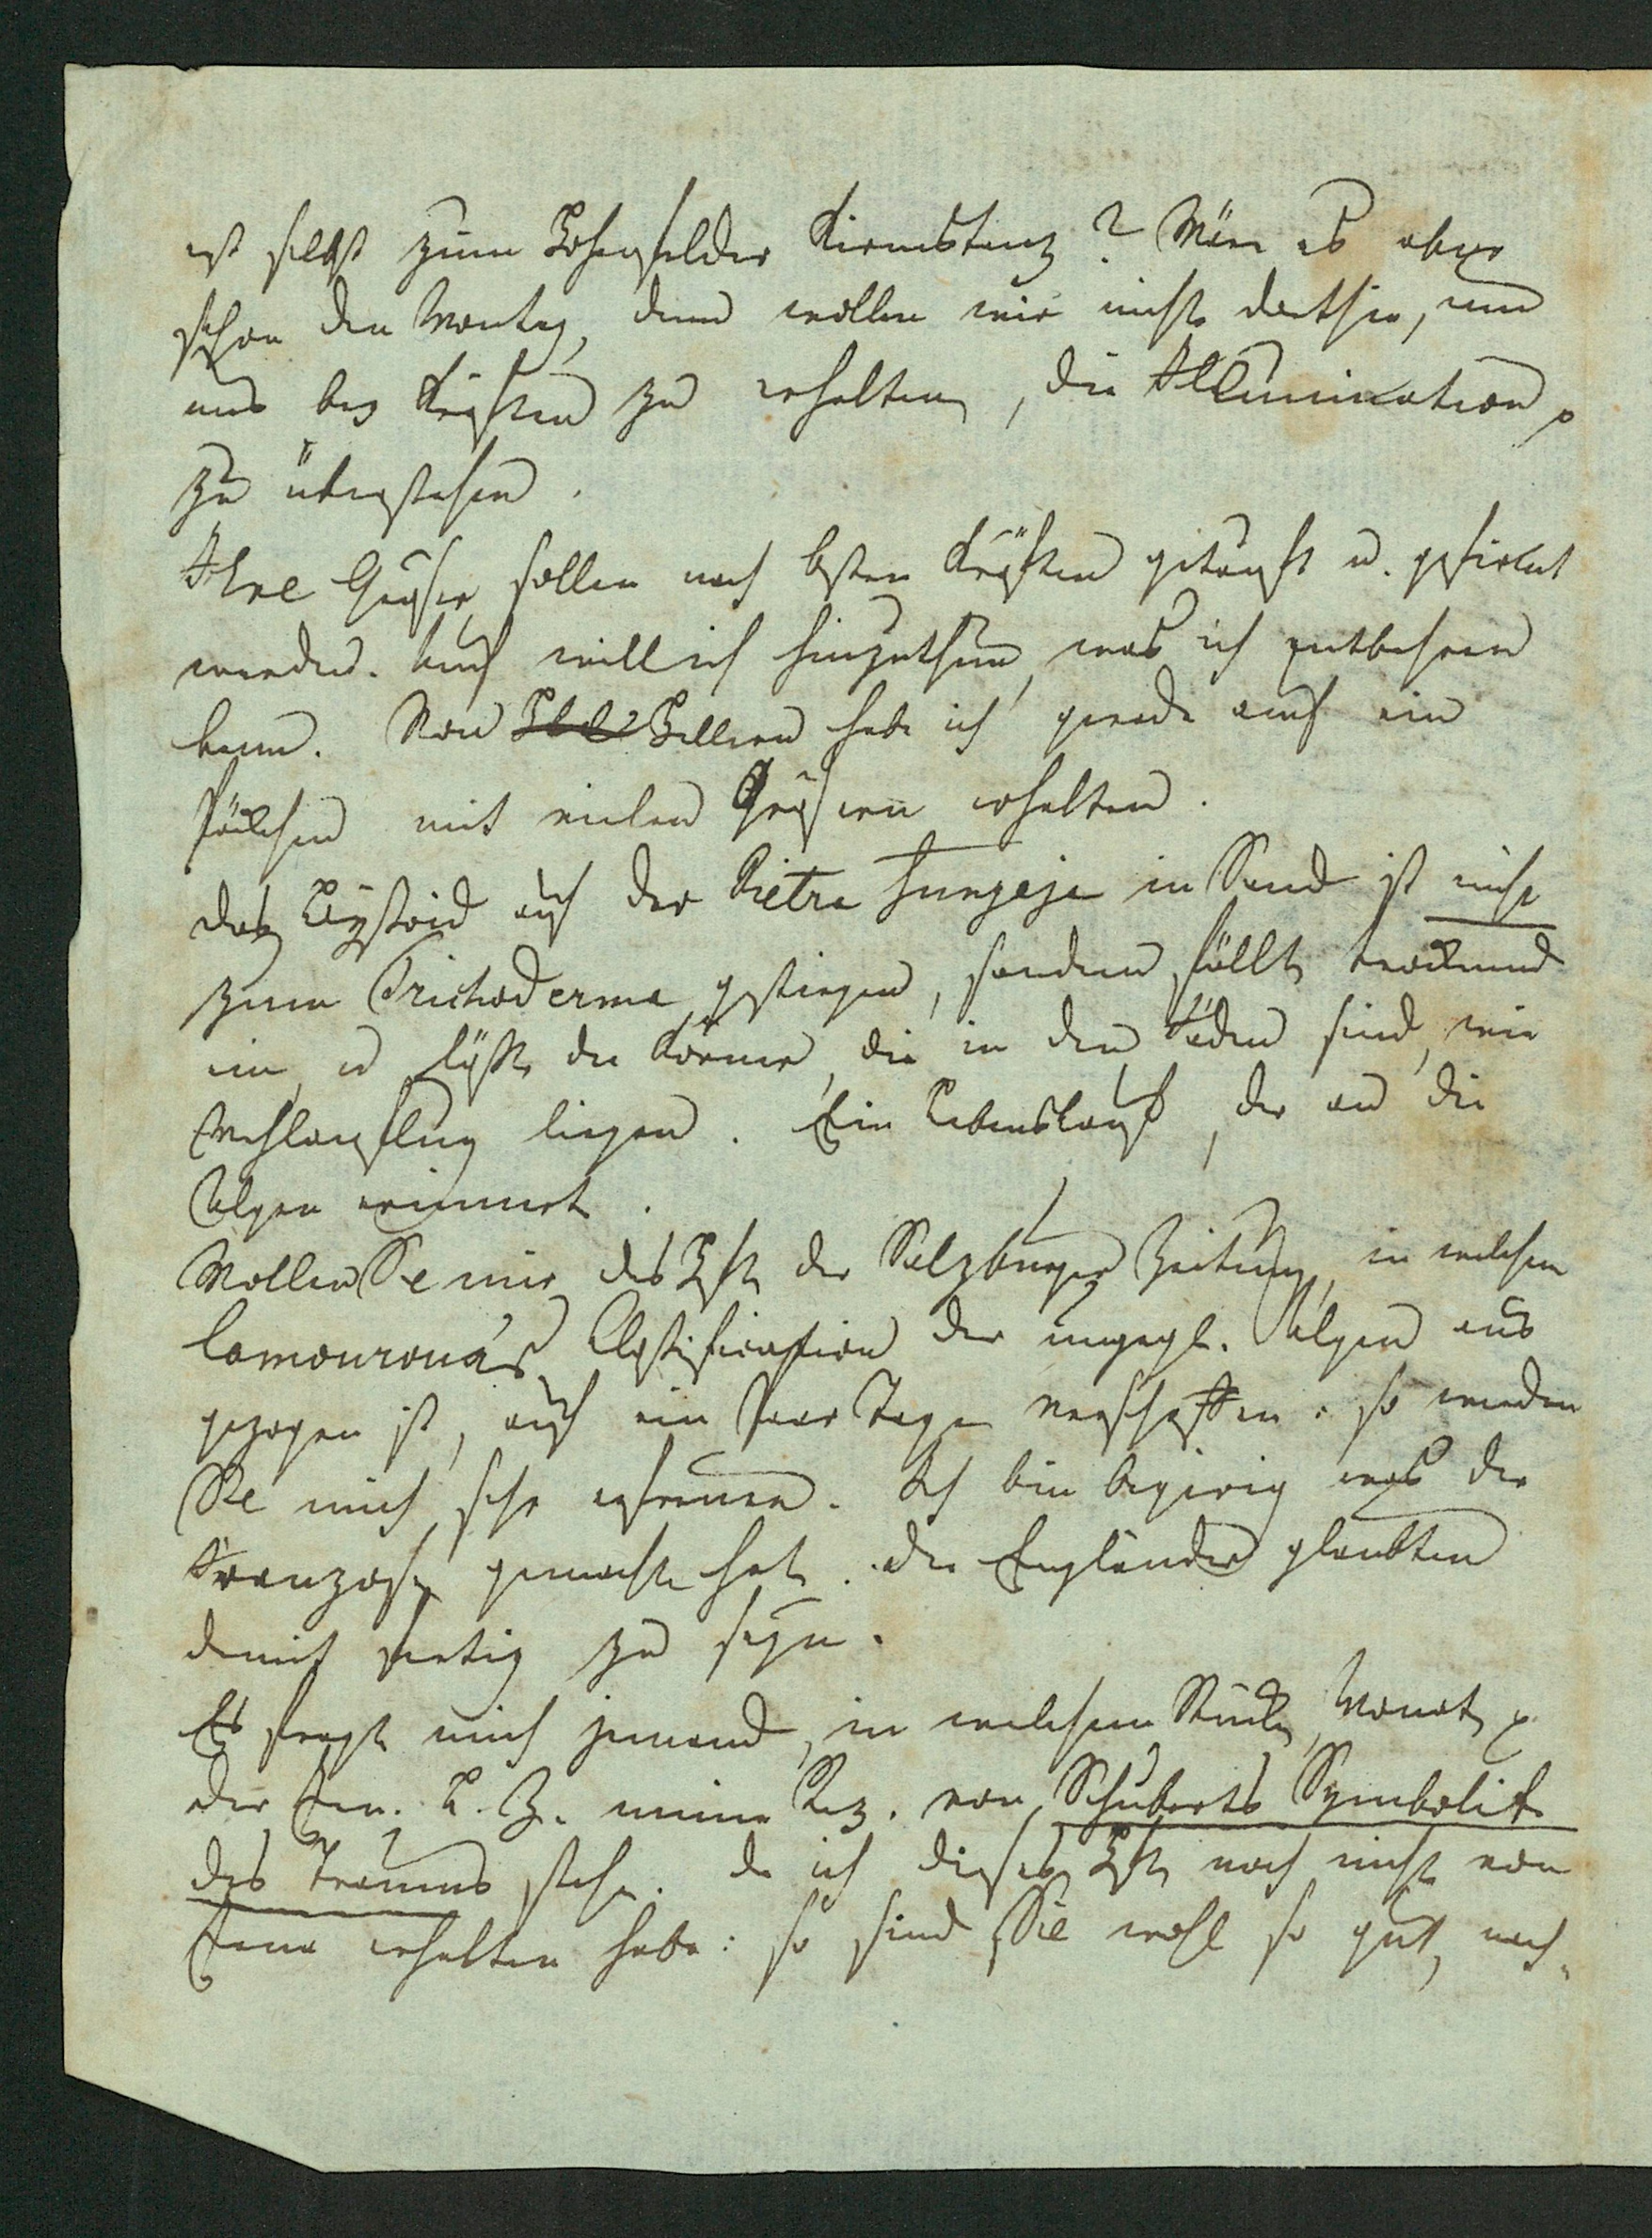 erst selbst zum Hohenfelder Kirmstanz? Wäre es aber
schon den Montag, dann wollen wir nicht dorthin, um
uns bey Kräften zu erhalten, die Illumination p
zu überstehen.
Ihre Gräser sollen nach besten Kräften getauft u. gefirmt
werden. Auch will ich hinzuthun, was ich entbehren
kann. Von Zellern habe ich gerade auch ein
Päckchen mit vielen Gräsern erhalten.
das Byßoid auf der Pietra fungaja in Sand ist nicht
zum Trichoderma gestiegen, sondern fällt trocknend
ein, u läßt die Körner, die in den Fäden sind, wie
Mehlanflug liegen. Ein Lebenslauf, der an die
Algen erinnert.
Wollen Sie mir das Heft der Salzburger Zeitung, in welchem
Lamouroux's Classification der ungegl. Algen aus
gezogen ist, auf ein Paar Tage verschaffen: so werden
Sie mich sehr erfreuen. Ich bin begierig was der
Franzose gemacht hat. die Engländer glaubten
damit fertig zu seyn.
Es fragt mich jemand, in welchem Stücke, Monat p
der Jen. L. Z. meine Rez. von Schuberts Symbolik
des Traums stehe. da ich dieses Heft noch nicht von
Jena erhalten habe: so sind Sie wohl so gut, nach-